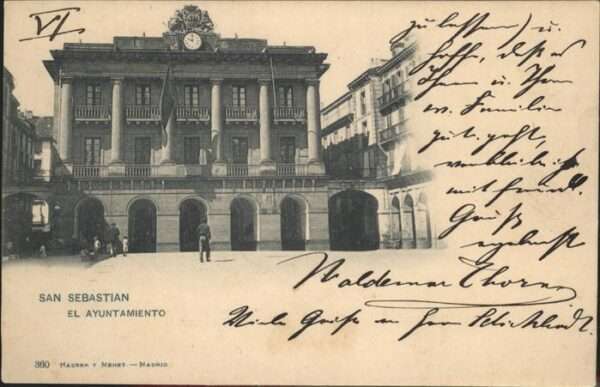 VI
zu lassen) u.
hoffe, daß es
Ihnen u. Ihrer
w. Familie
gut geht,
verbleibe ich
mit freundl.
Gruß
ergebenst
Waldemar
Viele Grüße an Herrn
SAN SEBASTIAN
EL AYUNTAMIENTO
360 HAUSER Y MENET.—MADRID